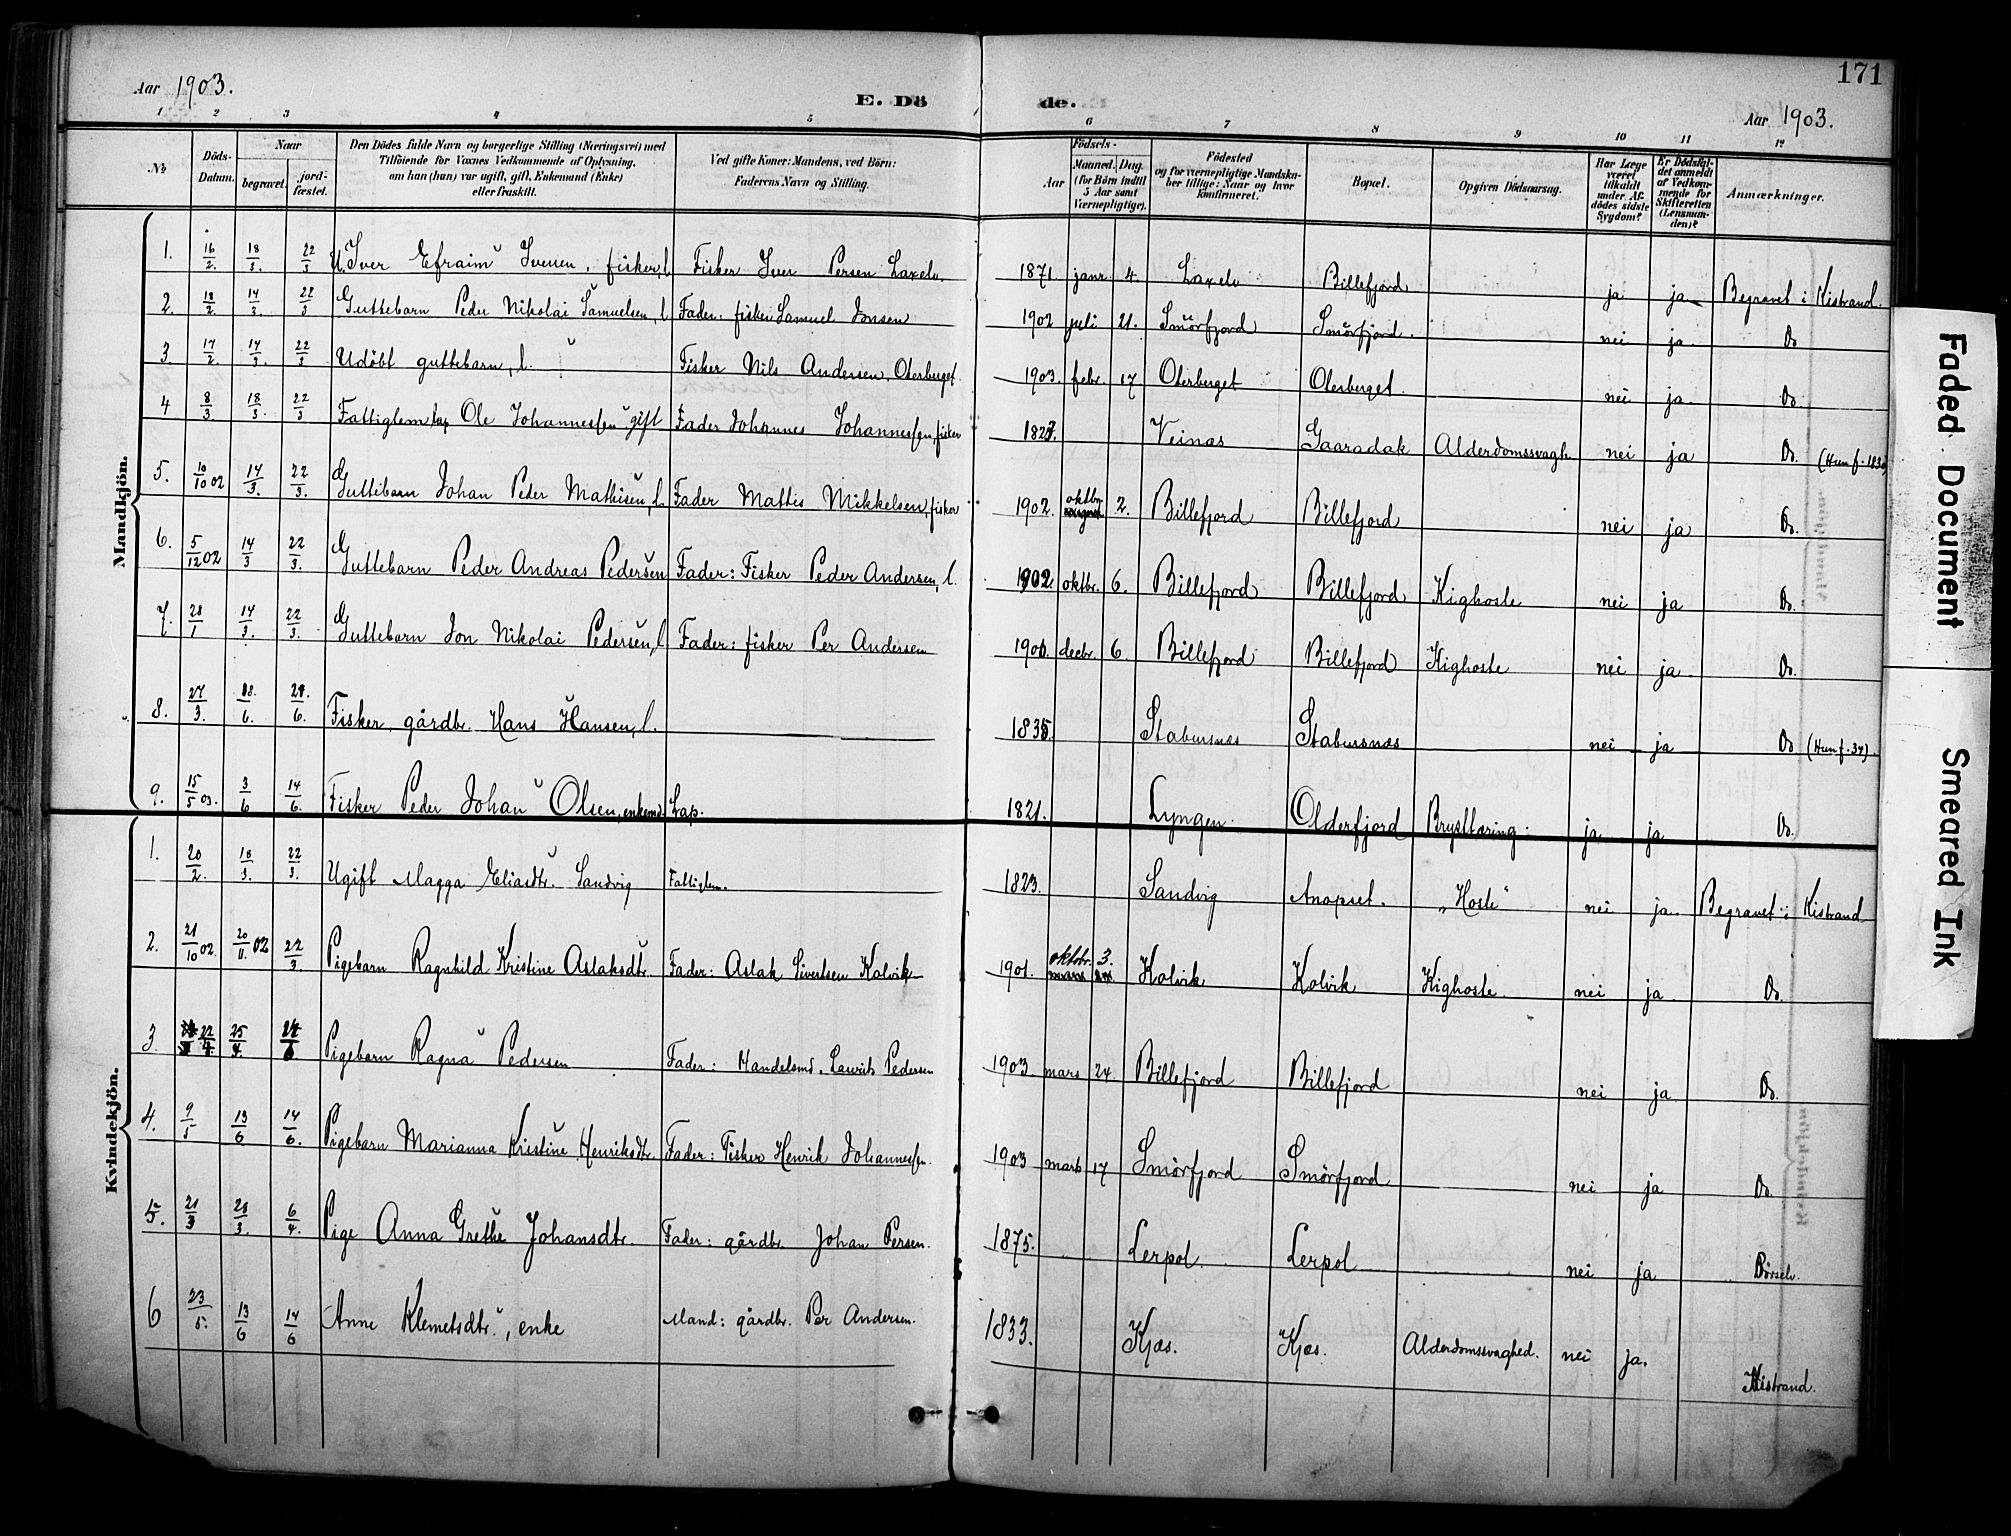 171
Aar 1903.
E. Dö de.
Aar 1903.
1 2 3 4 5 6 7 8 9 10 11 12
№
Döds-Datum.
Naar
begravet.
jord-fæstet.
Den Dödes fulde Navn og borgerlige Stilling (Næringsvei) med
Tilföiende for Voxnes Vedkommende af Oplysning,
om han (hun) var ugift, gift, Enkemand (Enke)
eller fraskilt.
Ved gifte Koner: Mandens, ved Börn:
Faderens Navn og Stilling.
Födsels-
Aar
Maaned. Dag.
(for Börn indtil
5 Aar samt
Værnepligtige).
Födested
og for værnepligtige Mandska-
ber tillige: Naar og hvor
konfirmeret.
Bopæl.
Opgiven Dödsaarsag.
Har Læge
været
tilkaldt
under Af-
dödes sidste
Sygdom?
Er Dödsfal-
det anmeldt
af Vedkom-
mende for
Skifteretten
(Lensman-
den)?
Anmærkninger.
Mandkjön.
1. 16/2. 18/3. 22/3 U. Iver Efraim Iversen, fisker, l Fisker Iver Persen Laxelv. 1871 janr. 4. Laxelv Billefjord ja ja Begravet i Kistrand.
2. 18/2. 14/3. 22/3 Guttebarn Peder Nikolai Samuelsen, l Fader: fisker Samuel Jonsen 1902 juli 21. Smörfjord Smörfjord. nei ja Do
3. 17/2. 14/3. 22/3 Udöbt guttebarn, l. Fisker Nils Andersen, Oterberget 1903. febr. 17 Oterberget Oterberget. nei ja. Do.
4 8/3. 18/3. 22/3 Fattiglem Ole Johannessen gift Fader Johannes Johannessen, fisker Veinæs Gaaradak Alderdomssvagh. nei ja Do. (Hun f. 1830)
5. 10/10 02 14/3. 22/3. Guttebarn Johan Peder Mathisen, l. Fader Mattis Mikkelsen, fisker 1902. oktbr 2. Billefjord Billefjord nei ja Do.
6. 5/12 02 14/3 22/3. Guttebarn Peder Andreas Pedersen Fader: Fisker Peder Andersen, l. 1902. oktbr. 6. Billefjord Billefjord Kighoste nei ja Do.
7. 28/1 14/3. 22/3. Guttebarn Jon Nikolai Pedersen, l Fader: fisker Per Andersen decbr. 6. Billefjord Billefjord Kighoste nei ja. Do.
8. 27/3. Fisker, gårdbr. Hans Hansen, l. Stabursnæs Stabursnæs nei ja Do (Hun f. 34).
9. 15/5 03. 3/6 14/6. Fisker Peder Johan Olsen, enkemd. Lap. 1821. Lyngen. Olderfjord Brysttæring. ja ja Do.
Kvindekjön.
1. 20/2. 18/3. 22/3. Ugift Magga Eliasdtr. Sandvig Fattiglem. 1823. Sandvig Anopset. „Hoste“ nei ja. Begravet i Kistrand
2. 21/10 02. 20/11. 02 22/3. Pigebarn Ragnhild Kristine Aslaksdtr. Fader: Aslak Sivertsen Kolvik 1901. oktbr. 3. Kolvik Kolvik Kighoste. nei ja Do.
3. 22/4 25/4. Pigebarn Ragna Pedersen Fader: Handelsmd. Laurits Pedersen 1903. mars 24. Billefjord Billefjord nei ja Do.
4. 9/5 13/6 14/6. Pigebarn Marianna Kristine Henriksdtr. Fader: Fisker Henrik Johannessen. 1903 marts 17 Smörfjord Smörfjord nei ja Do.
5. 21/3 28/3. 6/4. Pige Anna Grethe Johansdtr. Fader: gårdbr. Johan Persen. 1875. Lerpol. Lerpol nei ja Börselv.
6 23/5. 13/6 14/6 Anne Klemetsdtr., enke Mand: gårdbr. Per Andersen. 1833. Kjæs. Kjæs. Alderdomssvaghed. nei ja. Kistrand.
Faded Document
Smeared Ink